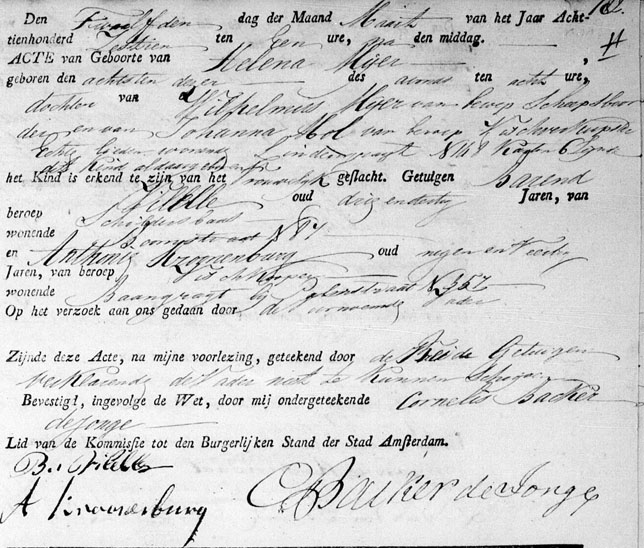 182.
Den Twaalfden dag der Maand Maart van het Jaar Acht-
tienhonderd Zestien ten Een ure, na den middag.
ACTE van Geboorte van Helena Mijer,
geboren den achtsten dezer des avonds ten acht ure,
dochter van Wilhelmus Mijer van beroep Scheeps
en van Johanna Mol van beroep
Echte lieden wonende N 148
het Kind is erkend te zijn van het vrouwelijk geslacht. Getuigen Barend
Vilelle oud drie en dertig Jaren, van
beroep Schilders baas
wonende Boomstraat N 87
en Anthonie Kroonenburg oud negen en Veertig
Jaren, van beroep
wonende Baangragt bij N 357
Op het verzoek aan ons gedaan door de Voornoemde Vader
Zijnde deze Acte, na mijne voorlezing, geteekend door de Beide Getuigen
Verklarende de Vader niet te kunnen Schrijven
Bevestigd, ingevolge de Wet, door mij ondergeteekende Cornelis Backer
de Jonge
Lid van de Kommissie tot den Burgerlijken Stand der Stad Amsterdam.
B. Vilelle
A Kroonenburg C Backer de Jonge